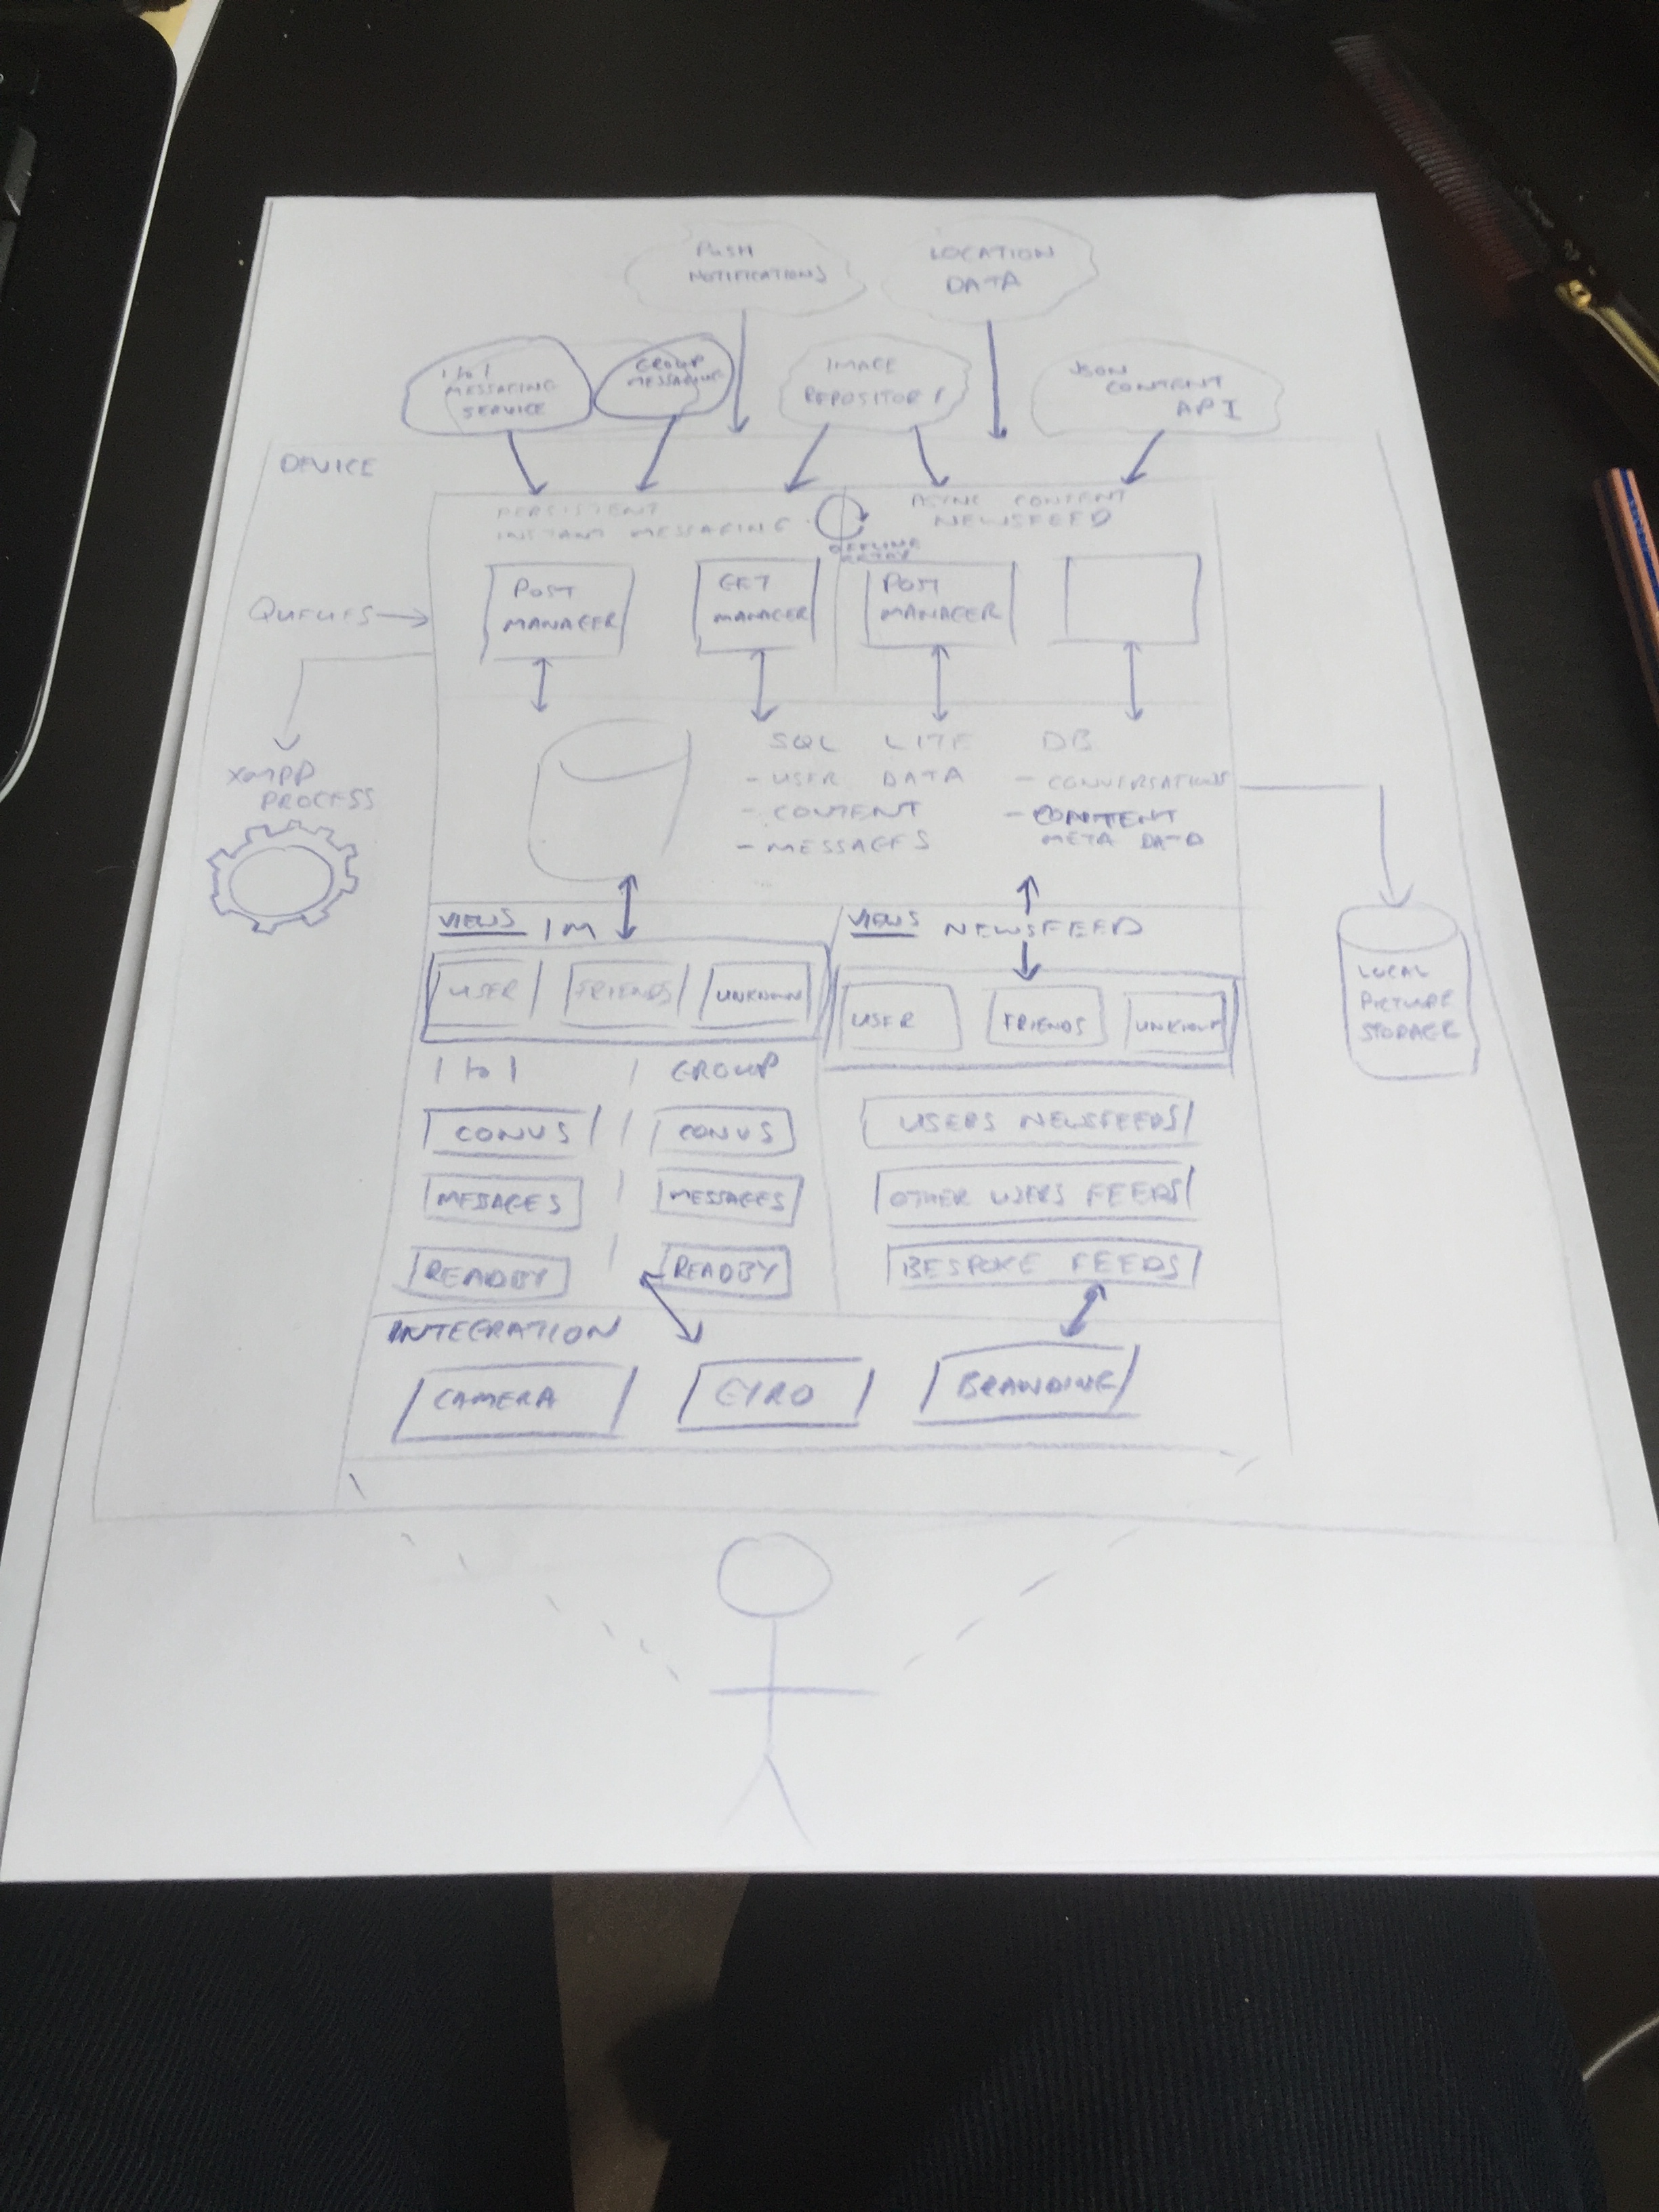 PUSH
NOTIFICATIONS
LOCATION
DATA
1 to 1
MESSAGING
SERVICE
GROUP
MESSAGING
IMAGE
REPOSITORY
JSON
CONTENT
API
DEVICE
PERSISTENT
INSTANT MESSAGING
ASYNC CONTENT
NEWSFEED
OFFLINE
RETRY
QUEUES
POST
MANAGER
GET
MANAGER
POST
MANAGER
XMPP
PROCESS
SQL LITE DB
- USER DATA
- CONTENT
- MESSAGES
- CONVERSATIONS
- CONTENT
META DATA
LOCAL
PICTURE
STORAGE
VIEWS IM
USER
FRIENDS
UNKNOWN
VIEWS NEWSFEED
USER
FRIENDS
UNKNOWN
1 to 1 | GROUP
CONVS | CONVS
MESSAGES | MESSAGES
READBY | READBY
USERS NEWSFEEDS
OTHER USERS FEEDS
BESPOKE FEEDS
INTEGRATION
CAMERA
GYRO
BRANDING